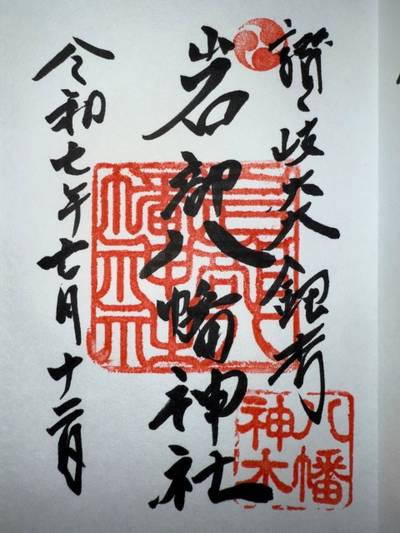 讃岐
銀杏
岩部八幡神社
令和七年七月十二日
八幡
神木